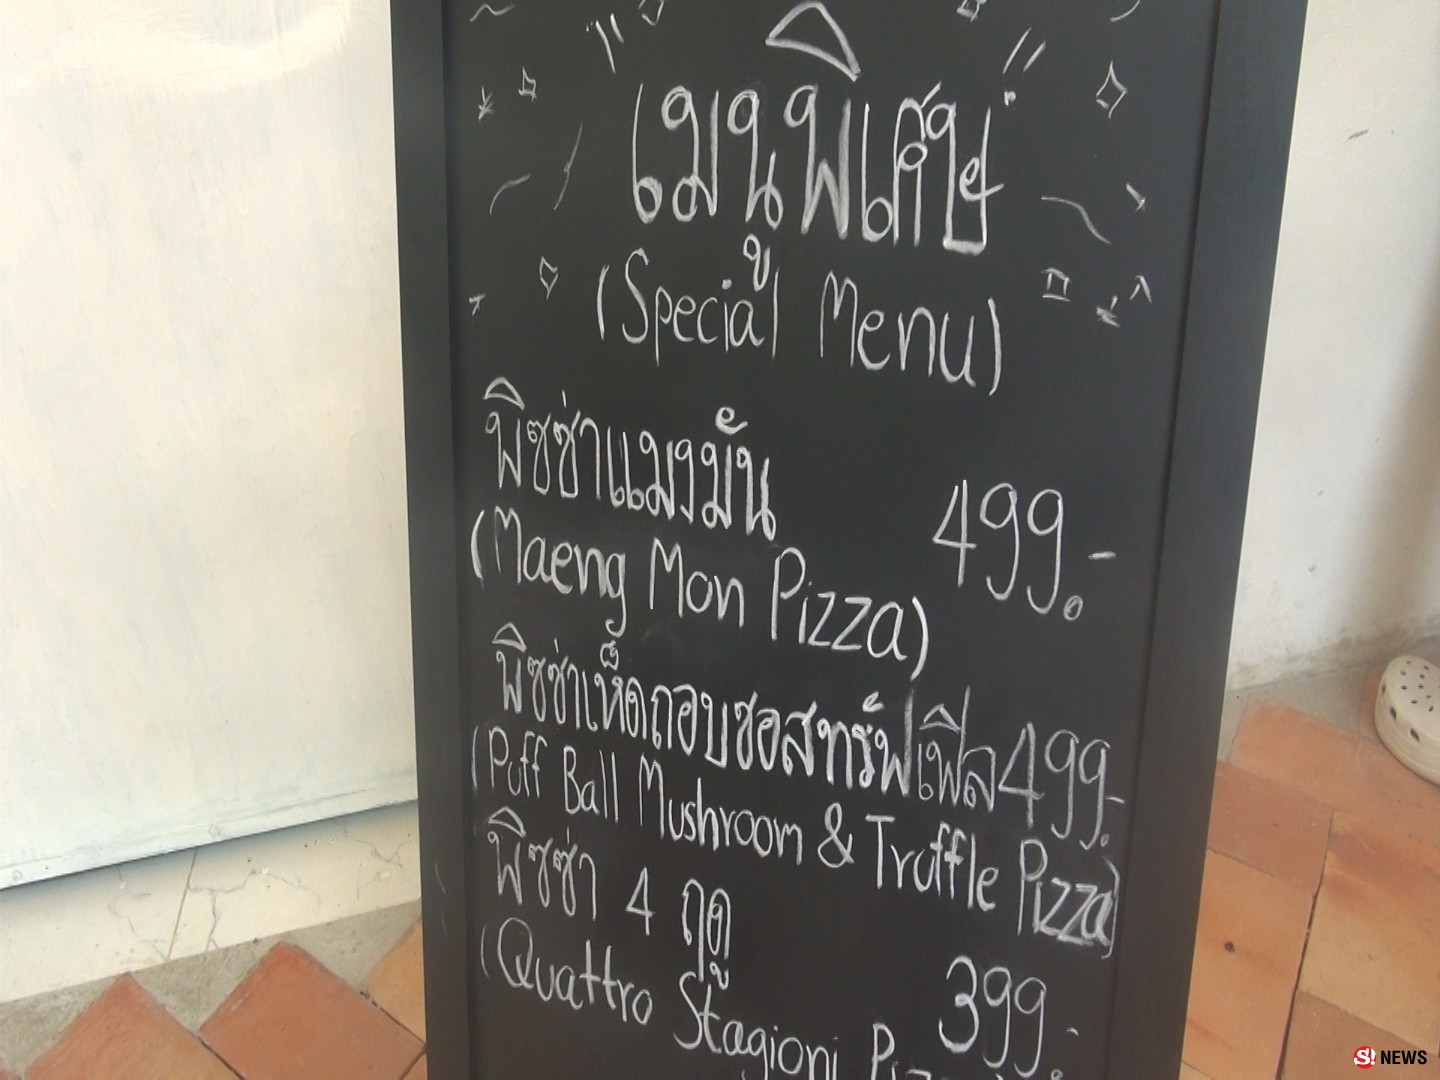 เมนูพิเศษ
(Special Menu)
พิซซ่าแมงมัน 499.-
(Maeng Mon Pizza)
พิซซ่าเห็ดถอบซอสทรัฟเฟิล 499.-
(Puff Ball Mushroom & Truffle Pizza)
พิซซ่า 4 ฤดู 399.-
(Quattro Stagioni
S! NEWS